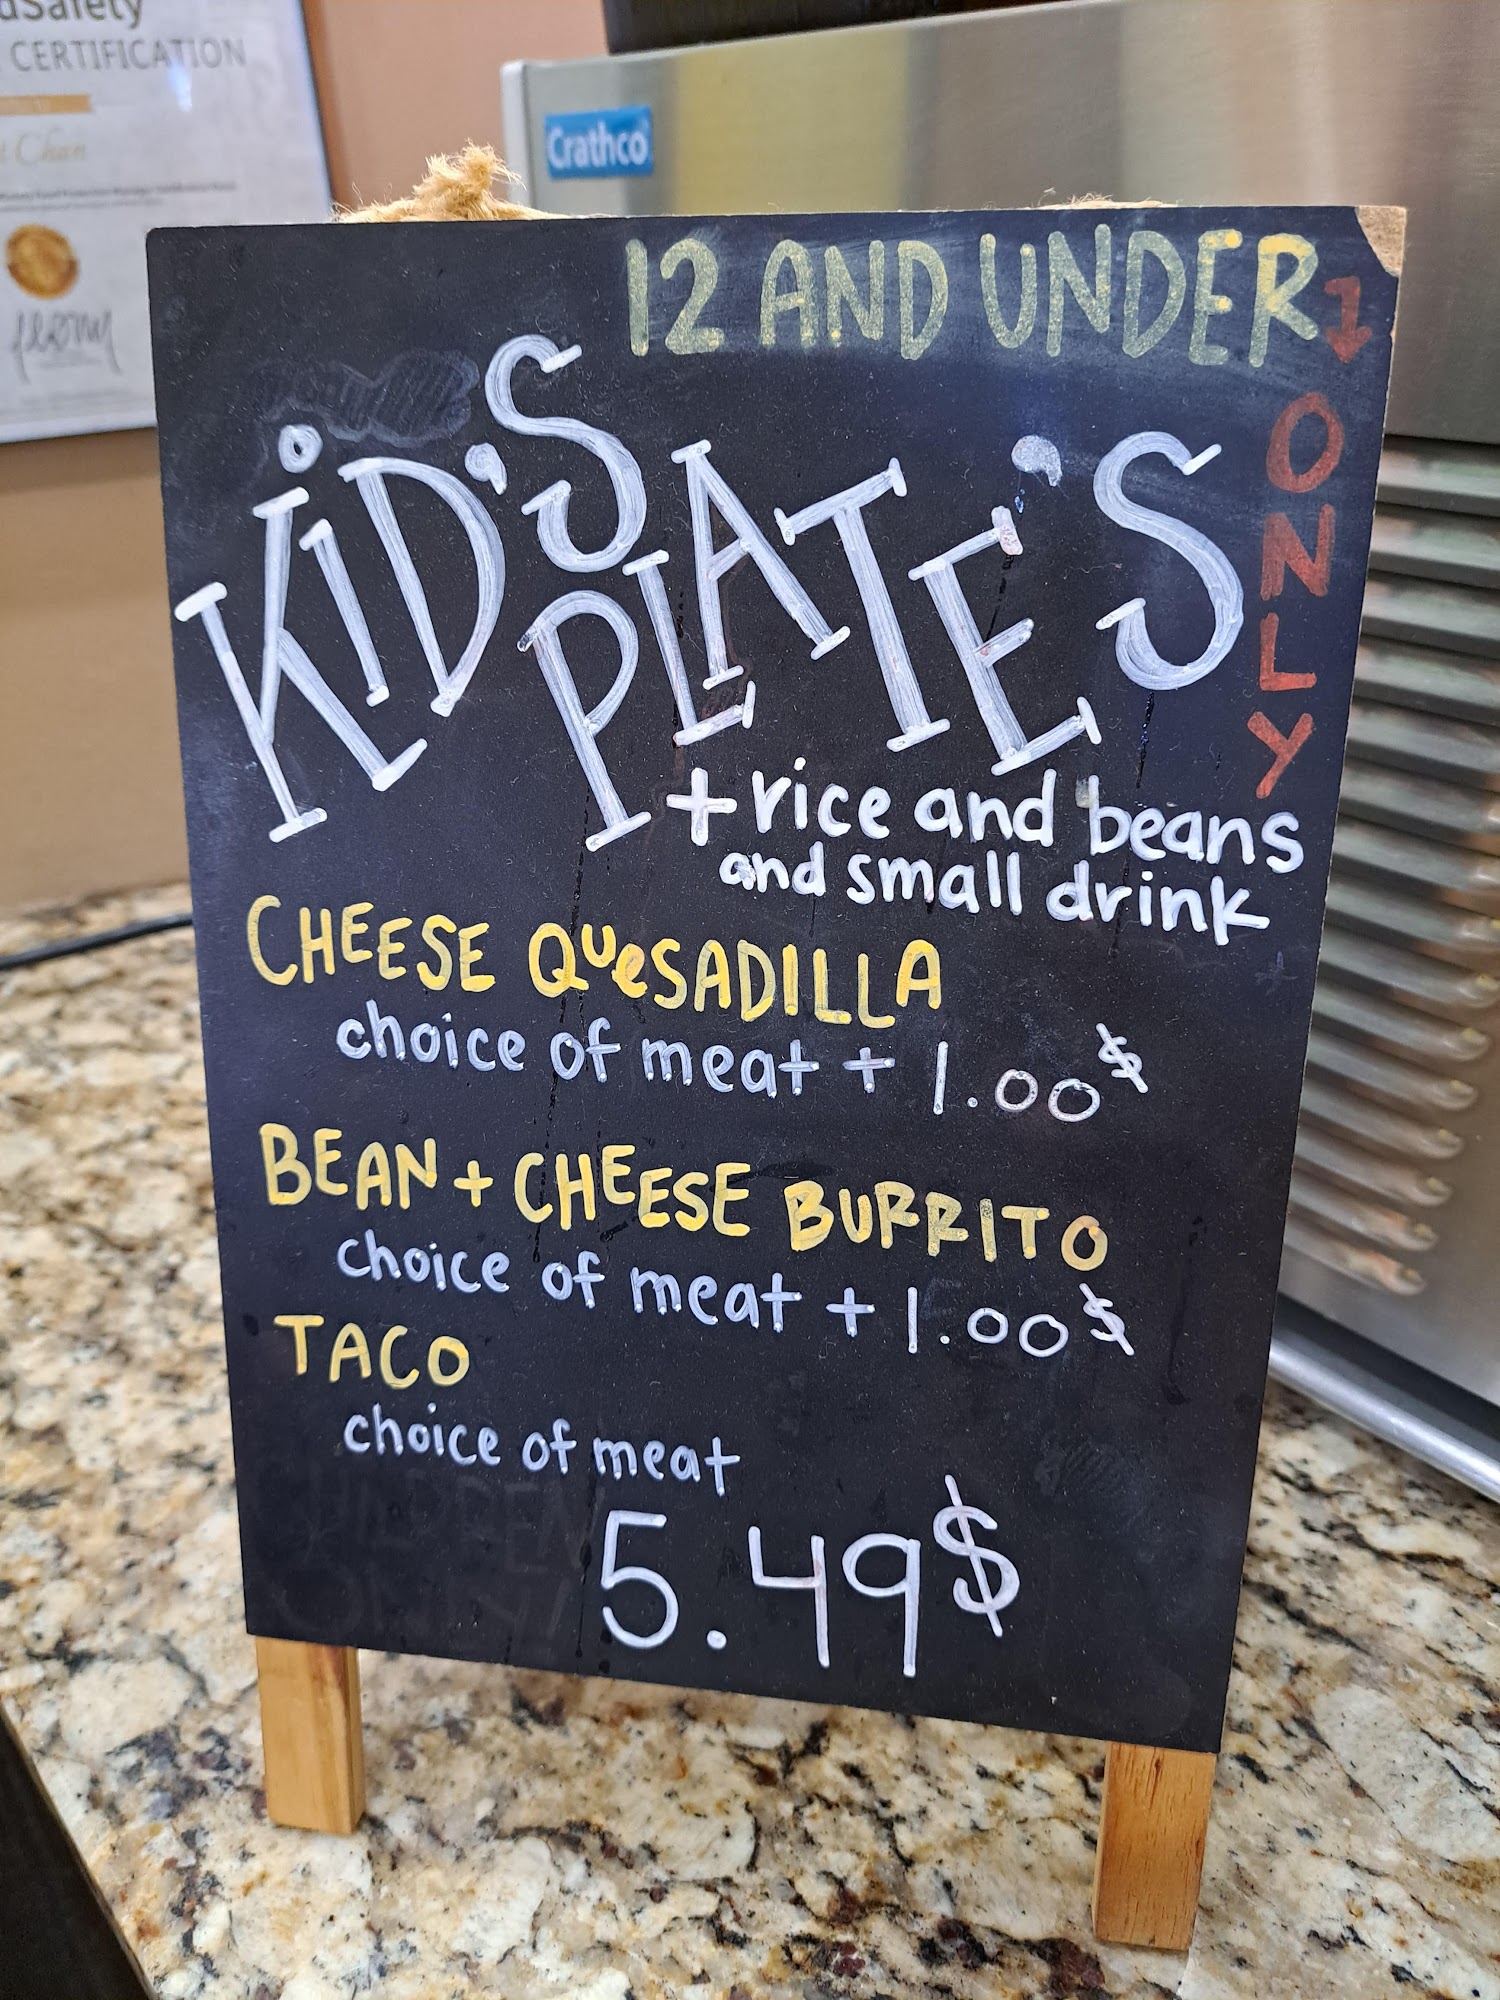 dSafety
CERTIFICATION
Chan
Crathco
12 AND UNDER
ONLY
KiD'S
PLATE'S
+ rice and beans
and small drink
CHEESE QUeSADILLA
choice of meat + 1.00$
BEAN + CHEESE BURRITO
choice of meat + 1.00$
TACO
choice of meat
5.49$